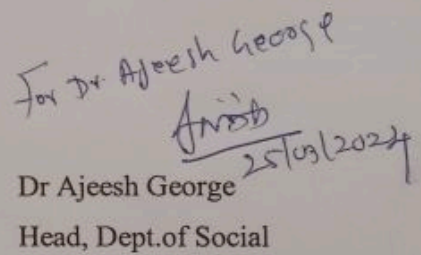 For Dr Ajeesh George
25/03/2024
Dr Ajeesh George
Head, Dept.of Social